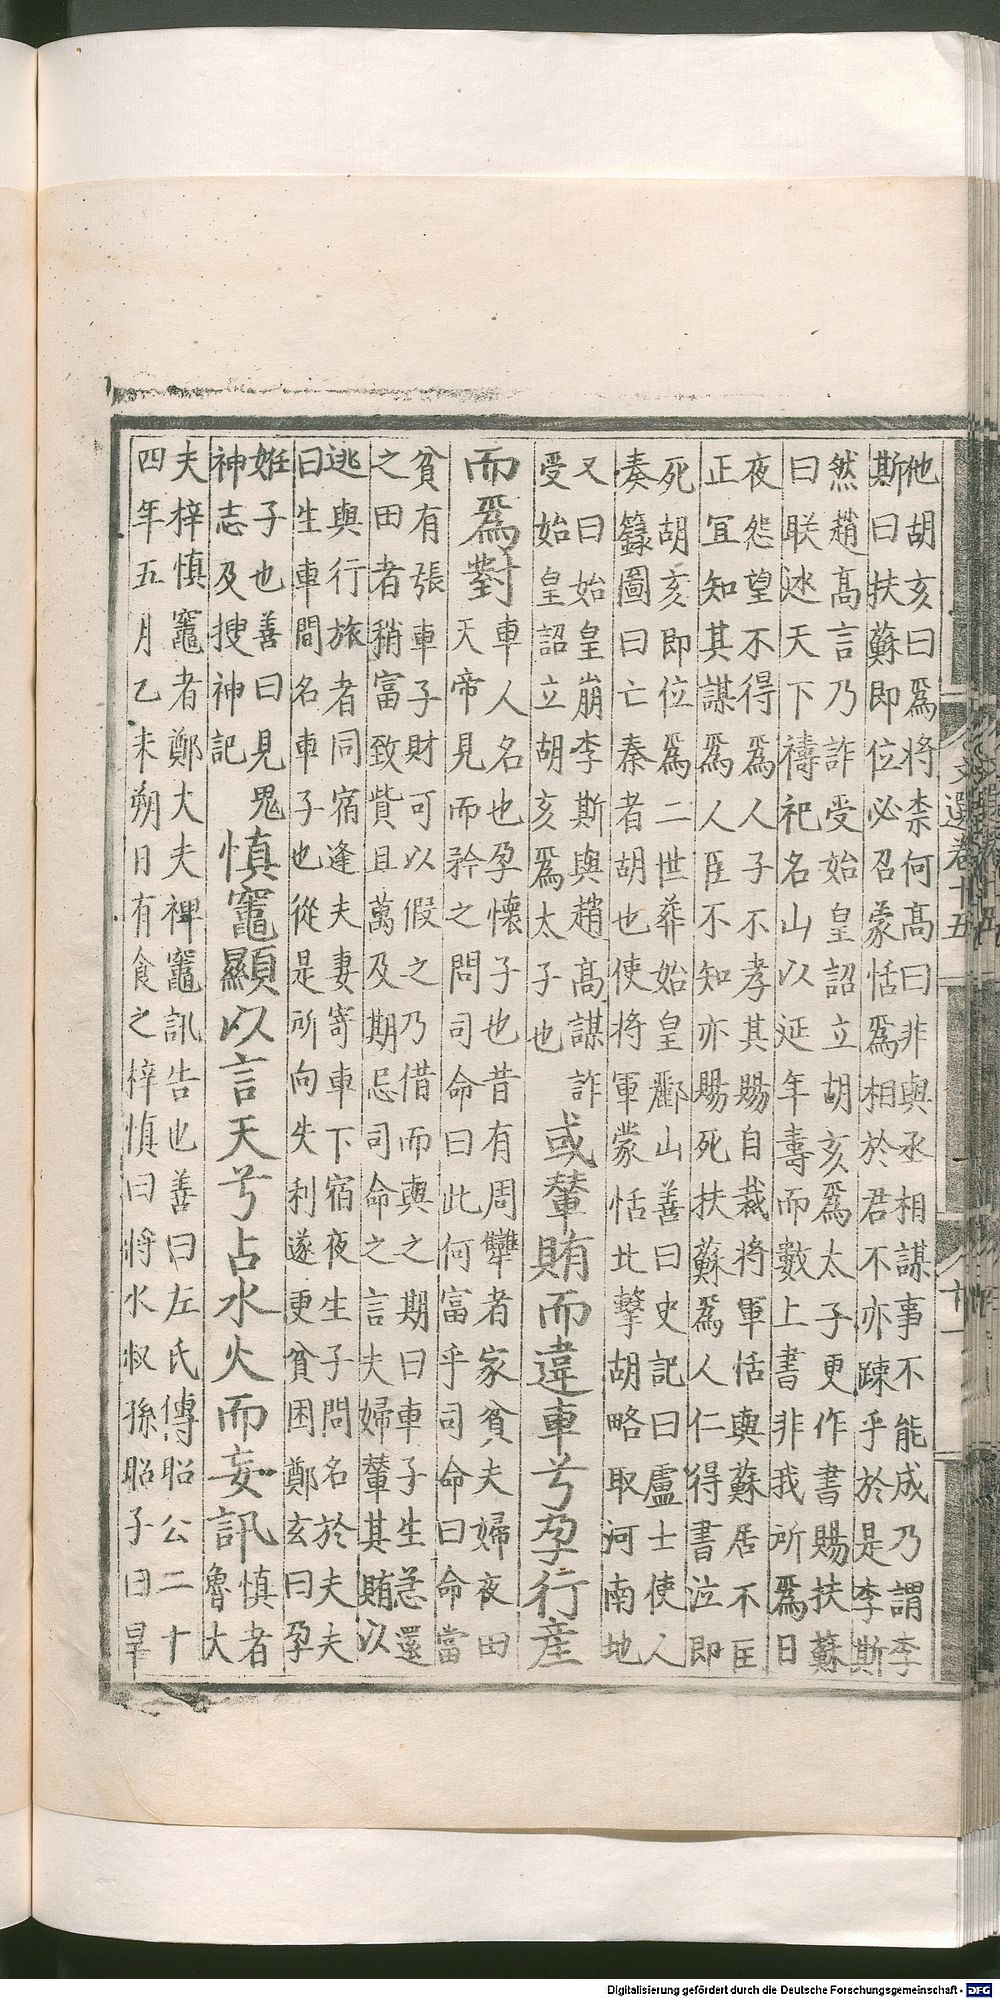 他胡亥曰爲將柰何高曰非與丞相謀事不能成乃謂李
斯斯曰扶蘇即位必召蒙恬爲相於君不亦踈乎於是李斯
然趙高言乃詐受始皇詔立胡亥爲太子更作書賜扶蘇
曰朕巡天下禱祀名山以延年壽而數上書非我所爲日
夜怨望不得爲人子不孝其賜自裁將軍恬與蘇居不匡
正冝知其謀爲人臣不知亦賜死扶蘇爲人仁得書泣即
死胡亥即位爲二世葬始皇酈山善曰史記曰盧士使人
奏籙圖曰亡秦者胡也使將軍蒙恬北擊胡略取河南地
又曰始皇崩李斯與趙高謀詐
受始皇詔立胡亥爲太子也
或輦賄而違車兮孕行産
而爲對
車人名也孕懷子也昔有周犨者家貧夫婦夜田
天帝見而矜之問司命曰此何富乎司命曰命當
貧有張車子財可以假之乃借而與之期曰車子生急還
之田者稍富致貲且萬及期忌司命之言夫婦輦其賄以
逃與行旅者同宿逢夫妻寄車下宿夜生子問名於夫夫
曰生車間名車子也從是所向失利遂更貧困鄭玄曰孕
姙子也善曰見鬼
神志及搜神記
慎竈顯以言天兮占水火而妄訊
慎者
魯大
夫梓慎竈者鄭大夫裨竈訊告也善曰左氏傳昭公二十
四年五月乙未朔日有食之梓慎曰將水叔孫昭子曰旱
文選卷十五
十一
Digitalisierung gefördert durch die Deutsche Forschungsgemeinschaft - DFG